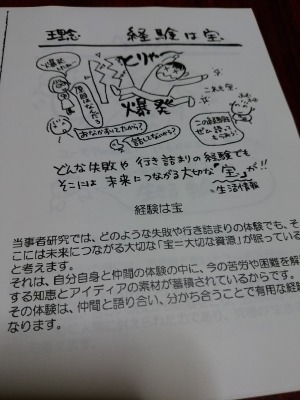 理念　経験は宝
とりゃー
爆発
おなかすいてたから?
話してなかった?
これも宝
どんな失敗や 行き詰まりの経験でも
そこには 未来につながる大切な「宝」が!!
生活情報
経験は宝
当事者研究では、どのような失敗や行き詰まりの体験でも、そ
こには未来につながる大切な「宝＝大切な資源」が眠っている
と考えます。
それは、自分自身と仲間の体験の中に、今の苦労や困難を解
する知恵とアイディアの素材が蓄積されているからです。
その体験は、仲間と語り合い、分かち合うことで有用な経験
なります。